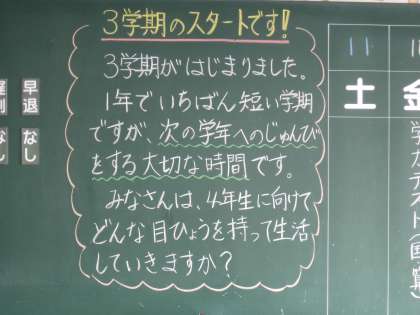 3学期のスタートです!
3学期がはじまりました。
1年でいちばん短い学期
ですが、次の学年へのじゅんび
をする大切な時間です。
みなさんは、4年生に向けて
どんな目ひょうを持って生活
していきますか?
11
土
金
学力テスト(国算)
早退 なし
遅刻 なし